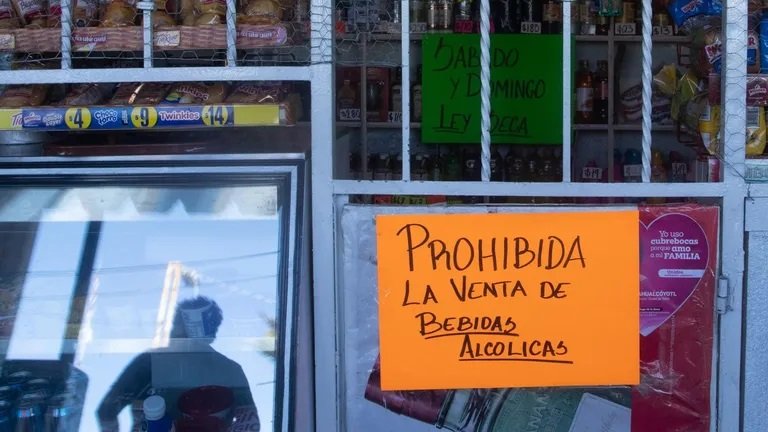 $180
$23
$13
SABADO
Y DOMINGO
LEY SECA
$4
$9
Twinkies
$14
PROHIBIDA
LA VENTA DE
BEBIDAS
ALCOLICAS
Yo uso
cubrebocas
porque amo
a mi FAMILIA
Unidos